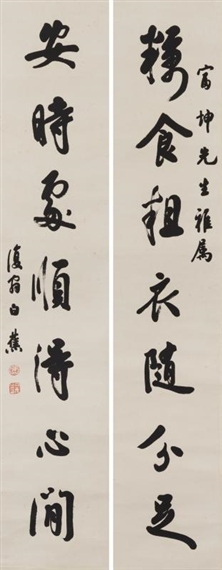 富坤先生雅属
糲食粗衣隨分足
安時處順得心閒
復翁白蕉